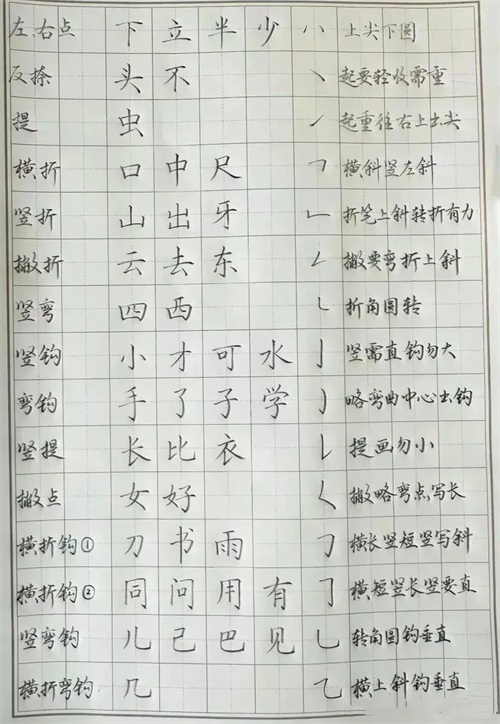 左、右点 下 立 半 少 ハ 上尖下圆
反捺 头 不 ㇔ 起要轻收需重
提 虫 ㇀ 起重往右上出尖
横折 口 中 尺 ㇕ 横斜竖左斜
竖折 山 出 牙 ㇗ 折笔上斜转折有力
撇折 云 去 东 ㇜ 撇要弯折上斜
竖弯 四 西 ㇄ 折角圆转
竖钩 小 才 可 水 亅 竖需直钩勿大
弯钩 手 了 子 学 ㇁ 略弯曲中心出钩
竖提 长 比 衣 ㇙ 提画勿小
撇点 女 好 ㇛ 撇略弯点写长
横折钩① 刀 书 雨 ㇆ 横长竖短竖写斜
横折钩② 同 问 用 有 ㇆ 横短竖长竖要直
竖弯钩 儿 己 巴 见 乚 转角圆钩垂直
横折弯钩 几 ㇈ 横上斜钩垂直